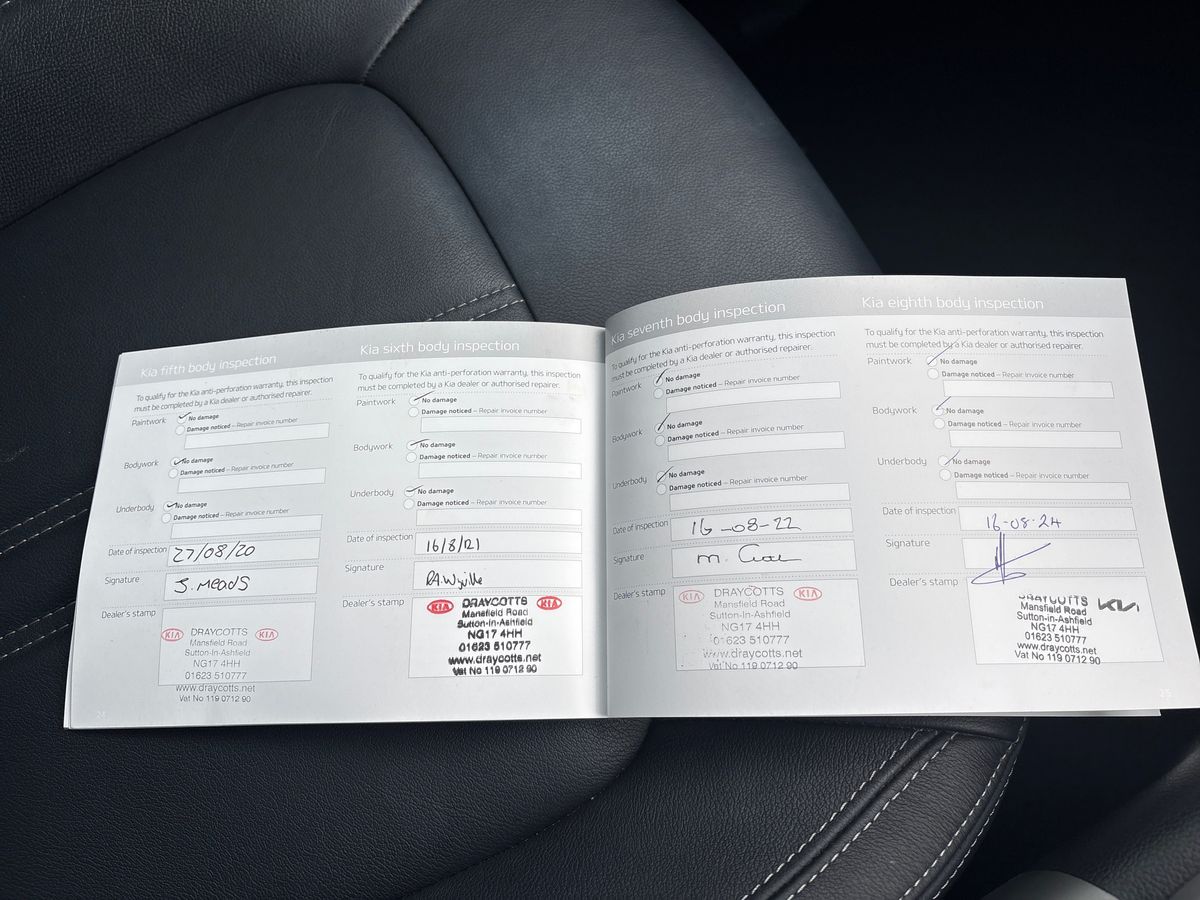 Kia fifth body inspection
To qualify for the Kia anti-perforation warranty, this inspection
must be completed by a Kia dealer or authorised repairer.
Paintwork
No damage
Damage noticed – Repair invoice number
Bodywork
No damage
Damage noticed – Repair invoice number
Underbody
No damage
Damage noticed – Repair invoice number
Date of inspection 27/08/20
Signature J. Meads
Dealer's stamp
KIA DRAYCOTTS KIA
Mansfield Road
Sutton-in-Ashfield
NG17 4HH
01623 510777
www.draycotts.net
Vat No 119 0712 90
24
Kia sixth body inspection
To qualify for the Kia anti-perforation warranty, this inspection
must be completed by a Kia dealer or authorised repairer.
Paintwork
No damage
Damage noticed – Repair invoice number
Bodywork
No damage
Damage noticed – Repair invoice number
Underbody
No damage
Damage noticed – Repair invoice number
Date of inspection 16/8/21
Signature
Dealer's stamp
KIA DRAYCOTTS KIA
Mansfield Road
Sutton-in-Ashfield
NG17 4HH
01623 510777
www.draycotts.net
Vat No 119 0712 90
Kia seventh body inspection
To qualify for the Kia anti-perforation warranty, this inspection
must be completed by a Kia dealer or authorised repairer.
Paintwork
No damage
Damage noticed – Repair invoice number
Bodywork
No damage
Damage noticed – Repair invoice number
Underbody
No damage
Damage noticed – Repair invoice number
Date of inspection 16-08-22
Signature M.
Dealer's stamp
KIA DRAYCOTTS KIA
Mansfield Road
Sutton-in-Ashfield
NG17 4HH
01623 510777
www.draycotts.net
Vat No 119 0712 90
Kia eighth body inspection
To qualify for the Kia anti-perforation warranty, this inspection
must be completed by a Kia dealer or authorised repairer.
Paintwork
No damage
Damage noticed – Repair invoice number
Bodywork
No damage
Damage noticed – Repair invoice number
Underbody
No damage
Damage noticed – Repair invoice number
Date of inspection 16-08-24
Signature
Dealer's stamp
DRAYCOTTS KIA
Mansfield Road
Sutton-in-Ashfield
NG17 4HH
01623 510777
www.draycotts.net
Vat No 119 0712 90
25